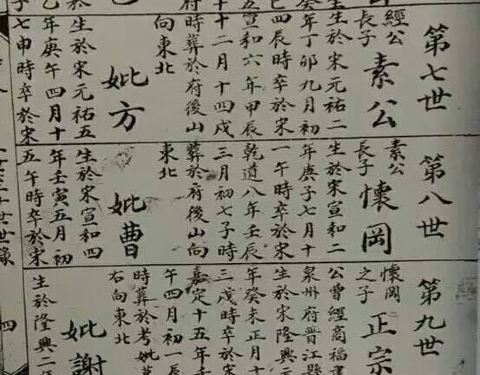 第七世
經公
長子
素公
生於宋元祐二
年丁卯九月初
四辰時卒於宋
宣和六年甲辰
十二月十四戌
時葬於府後山
向東北
妣方
生於宋元祐五
年庚午四月十
七申時卒於宋
第八世
素公
長子
懷岡
生於宋宣和二
年庚子七月十
一午時卒於宋
乾道八年壬辰
三月初七子時
葬於府後山向
東北
妣曹
生於宋宣和四
年壬寅五月初
五午時卒於宋
第九世
懷岡
之子
正宗
公曾經商福
泉州府晉江縣
生於宋隆興
年癸未正月十
三戌時卒於
嘉定十五年壬
午四月初一辰
時葬於考妣
右向東北
妣謝
生於隆興二
四